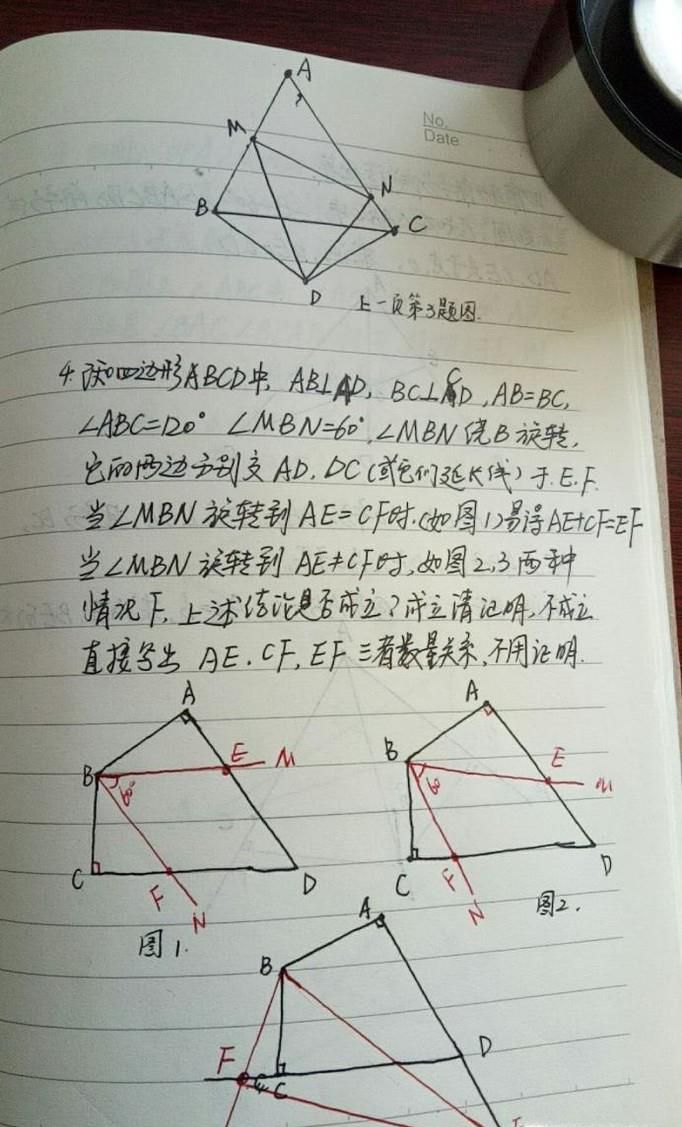 A
No.
Date
M
N
B
C
D
上一页第3题图.
4.四边形ABCD中, AB⊥AD, BC⊥CD, AB=BC,
∠ABC=120° ∠MBN=60°,∠MBN绕B旋转,
它的两边分别交AD,DC(或它们延长线)于.E.F.
当∠MBN旋转到AE=CF时,(如图1)易得AE+CF=EF
当∠MBN旋转到AE≠CF时,如图2,3两种
情况下,上述结论是否成立?成立请证明,不成立
直接写出 AE.CF,EF三者数量关系,不用证明.
A
B
E
M
60°
C
F
D
N
图1.
A
B
E
M
C
F
D
N
图2.
A
B
D
F
C